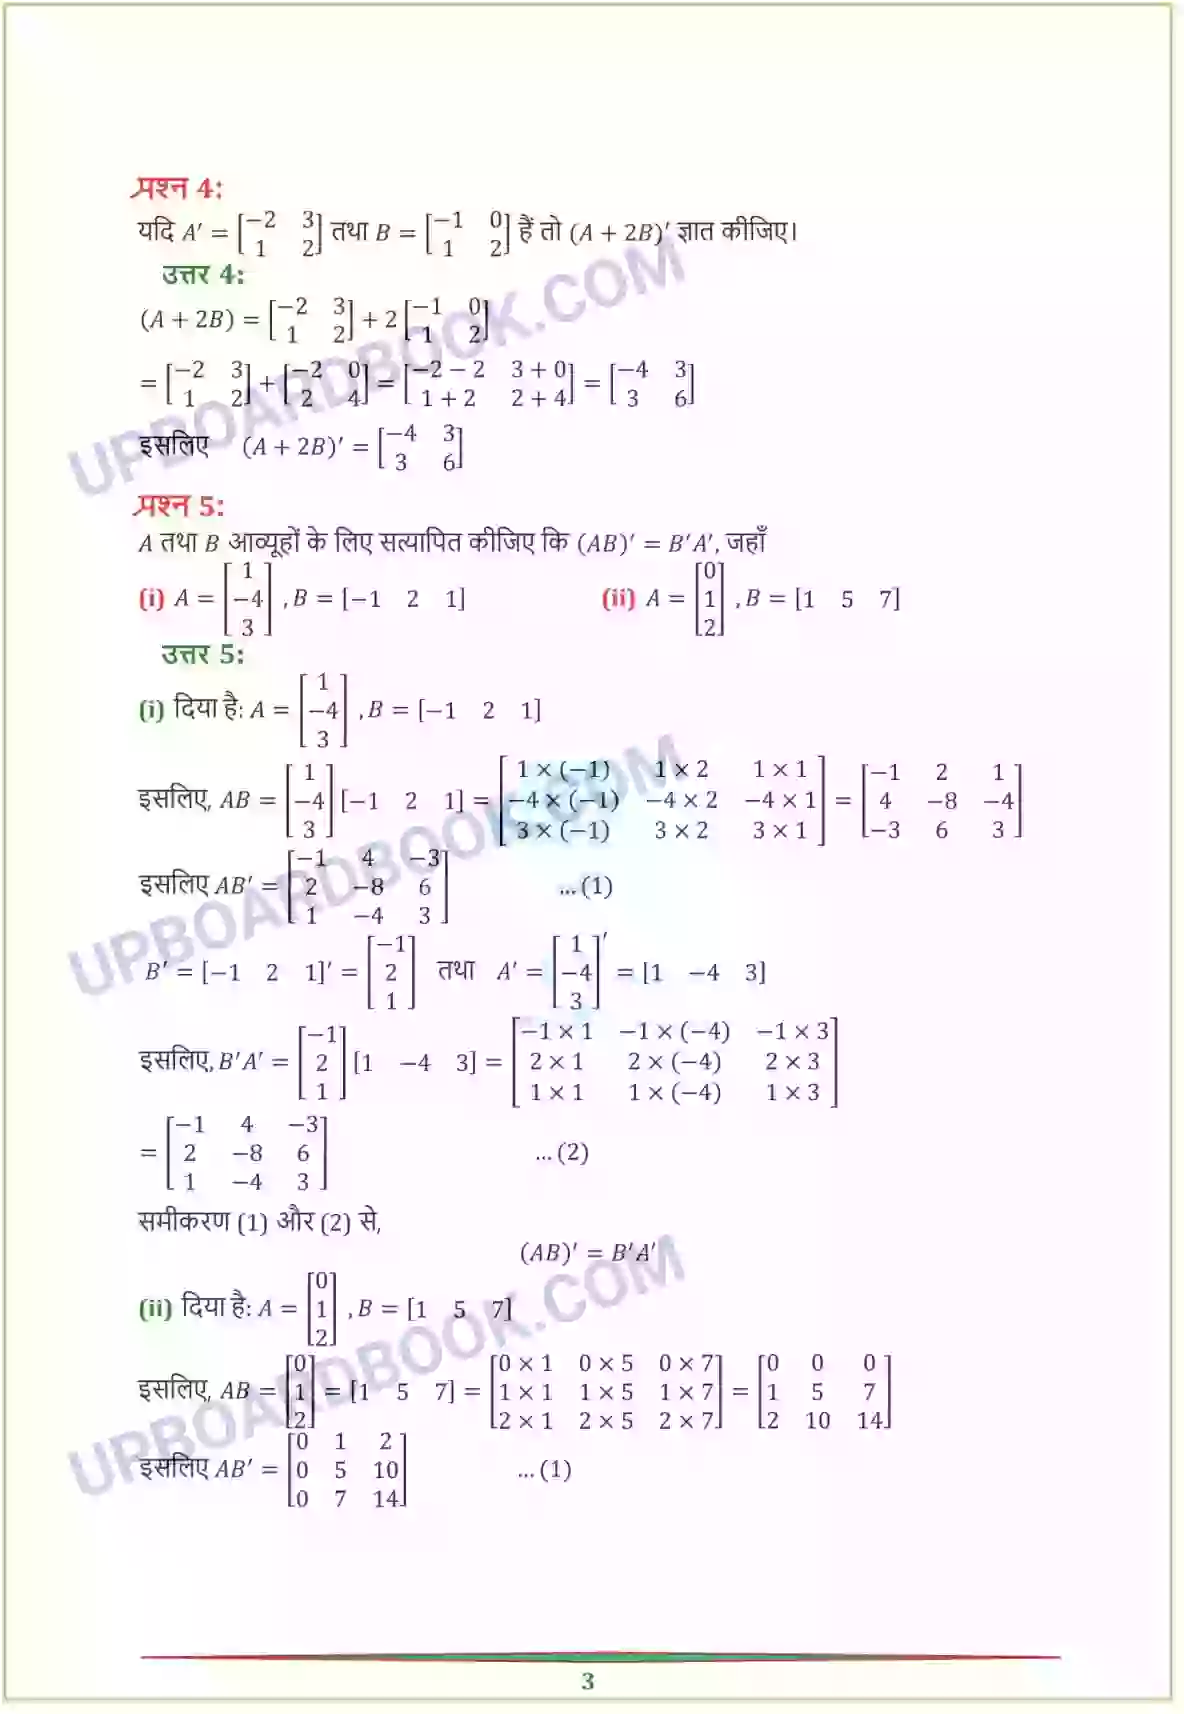 प्रश्न 4:
यदि A′ = [−2 3; 1 2] तथा B = [−1 0; 1 2] हैं तो (A + 2B)′ ज्ञात कीजिए।
उत्तर 4:
(A + 2B) = [−2 3; 1 2] + 2 [−1 0; 1 2]
= [−2 3; 1 2] + [−2 0; 2 4] = [−2 − 2 3 + 0; 1 + 2 2 + 4] = [−4 3; 3 6]
इसलिए (A + 2B)′ = [−4 3; 3 6]
प्रश्न 5:
A तथा B आव्यूहों के लिए सत्यापित कीजिए कि (AB)′ = B′A′, जहाँ
(i) A = [1; −4; 3] , B = [−1 2 1] (ii) A = [0; 1; 2] , B = [1 5 7]
उत्तर 5:
(i) दिया है: A = [1; −4; 3] , B = [−1 2 1]
इसलिए, AB = [1; −4; 3] [−1 2 1] = [1 × (−1) 1 × 2 1 × 1; −4 × (−1) −4 × 2 −4 × 1; 3 × (−1) 3 × 2 3 × 1] = [−1 2 1; 4 −8 −4; −3 6 3]
इसलिए AB′ = [−1 4 −3; 2 −8 6; 1 −4 3] … (1)
B′ = [−1 2 1]′ = [−1; 2; 1] तथा A′ = [1; −4; 3]′ = [1 −4 3]
इसलिए, B′A′ = [−1; 2; 1] [1 −4 3] = [−1 × 1 −1 × (−4) −1 × 3; 2 × 1 2 × (−4) 2 × 3; 1 × 1 1 × (−4) 1 × 3]
= [−1 4 −3; 2 −8 6; 1 −4 3] … (2)
समीकरण (1) और (2) से,
(AB)′ = B′A′
(ii) दिया है: A = [0; 1; 2] , B = [1 5 7]
इसलिए, AB = [0; 1; 2] = [1 5 7] = [0 × 1 0 × 5 0 × 7; 1 × 1 1 × 5 1 × 7; 2 × 1 2 × 5 2 × 7] = [0 0 0; 1 5 7; 2 10 14]
इसलिए AB′ = [0 1 2; 0 5 10; 0 7 14] … (1)
3
UPBOARDBOOK.COM
UPBOARDBOOK.COM
UPBOARDBOOK.COM